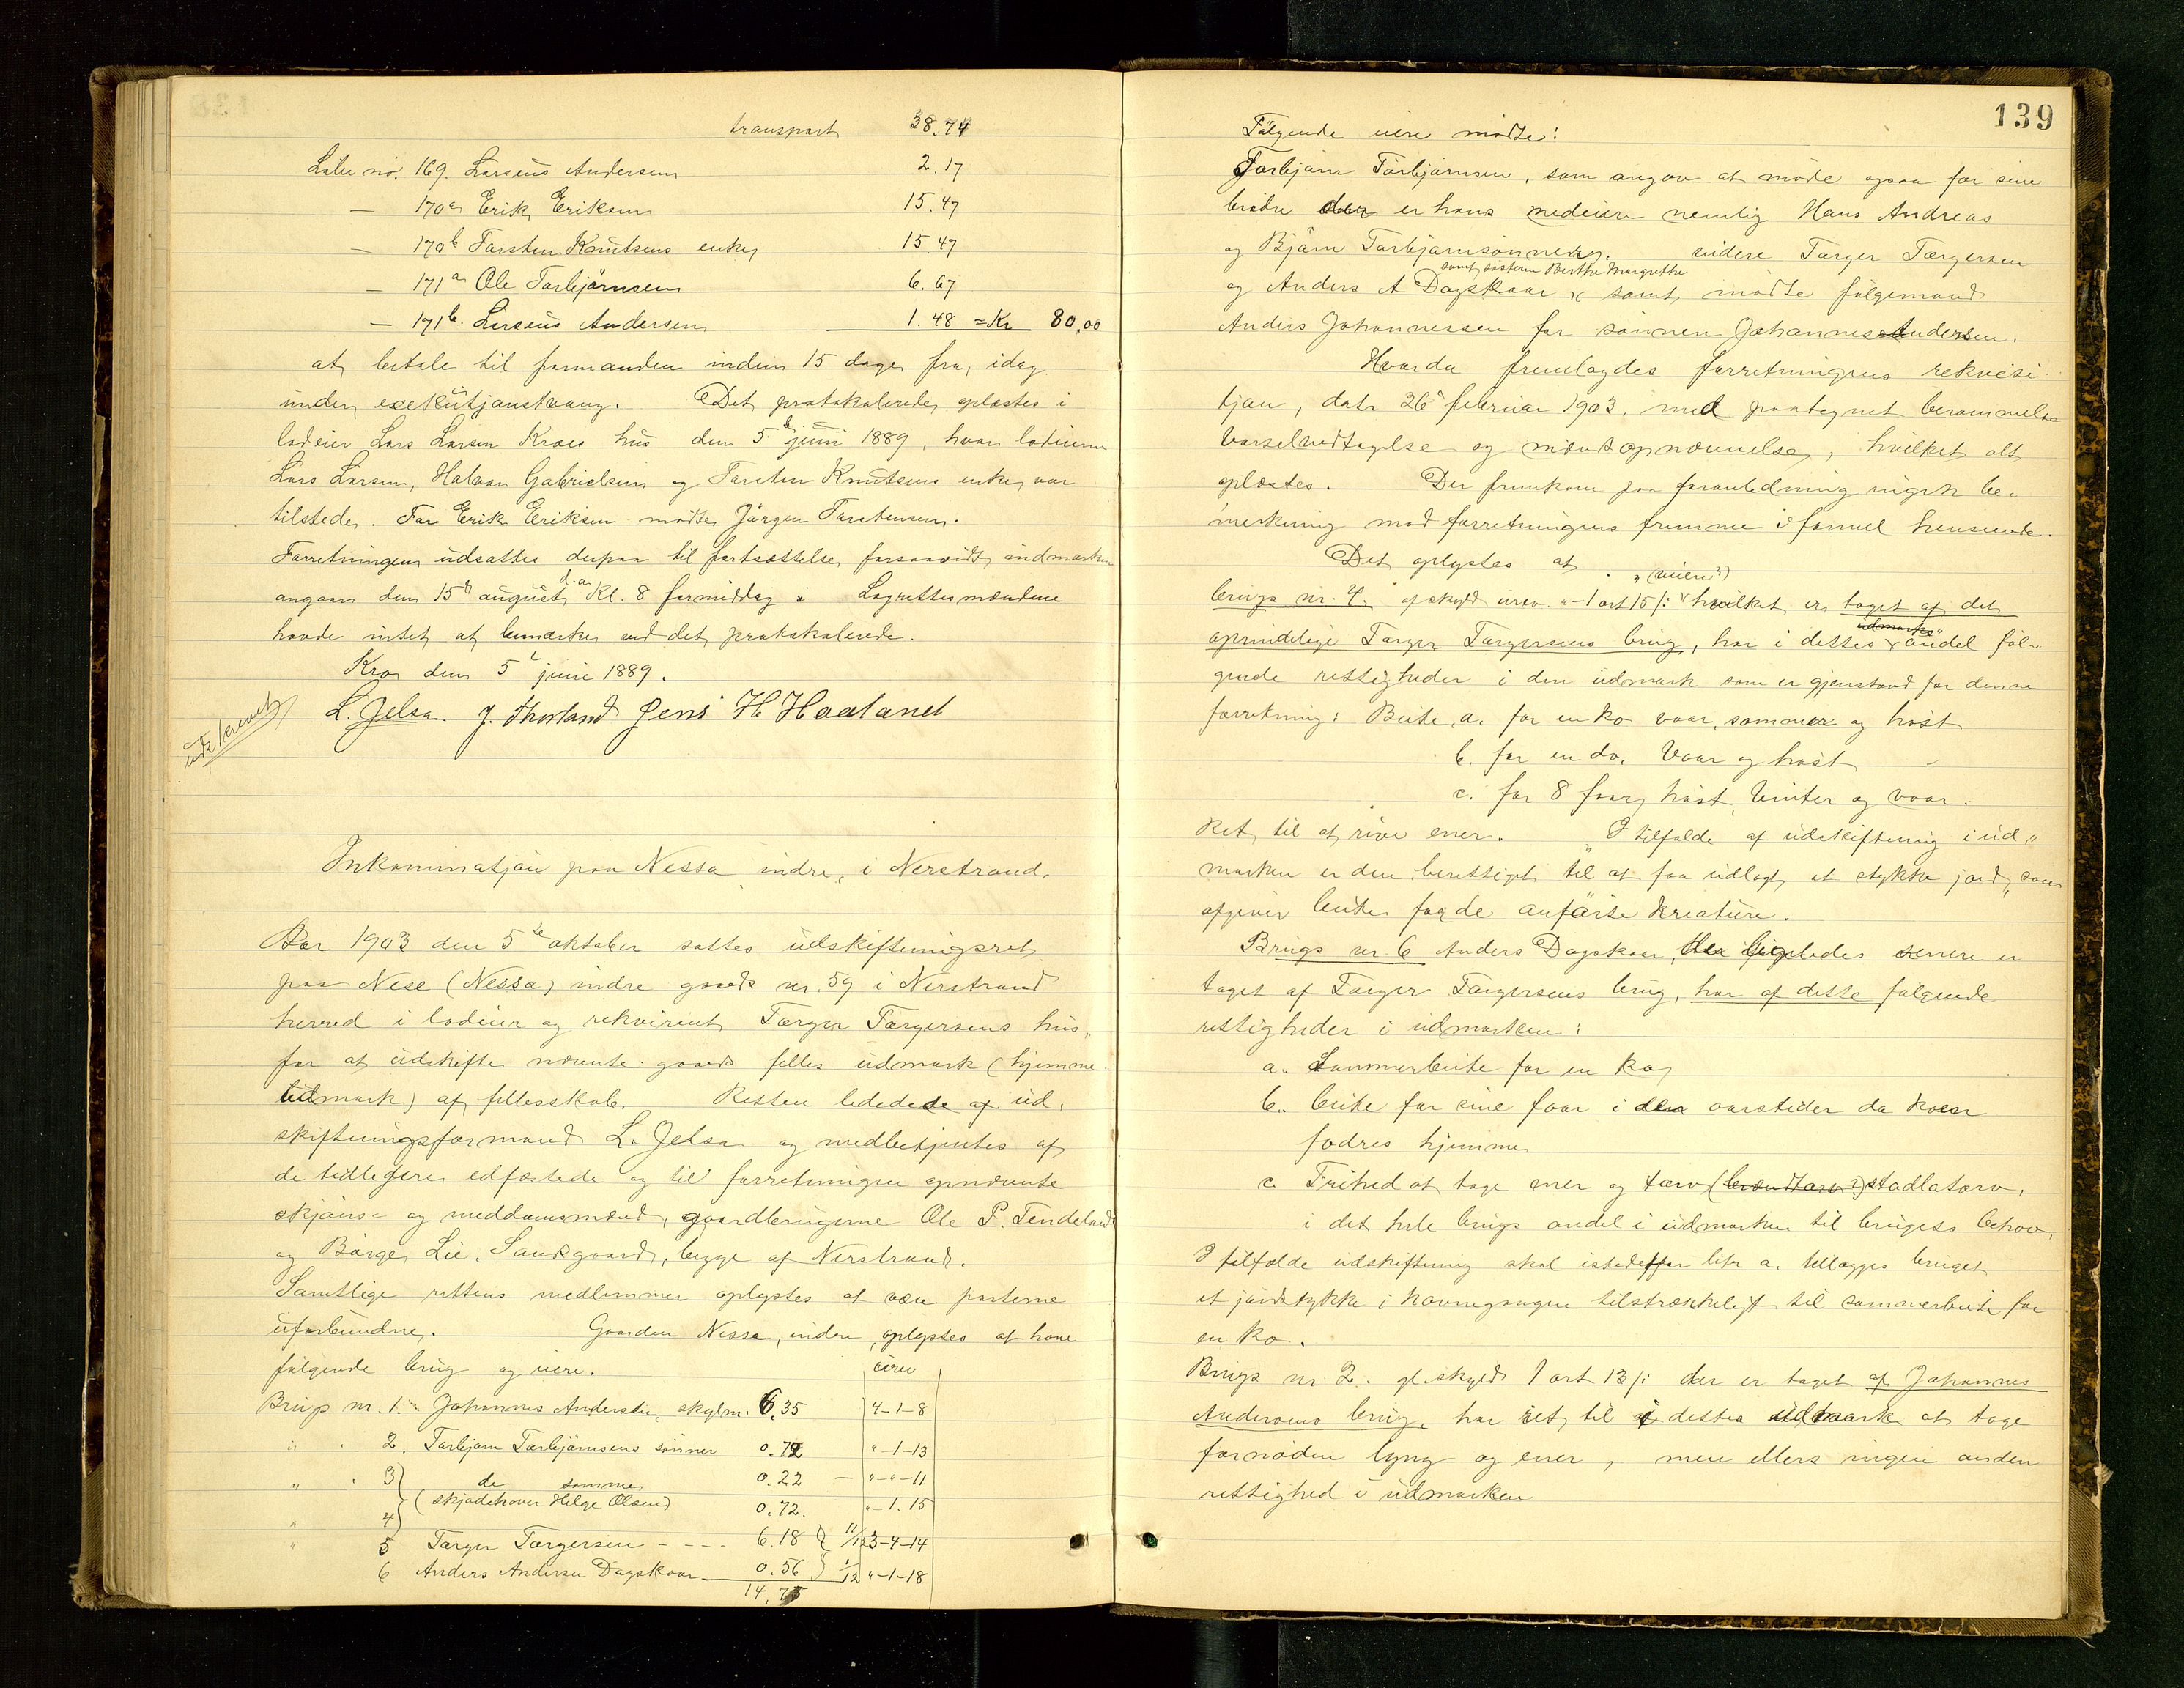 transport 38.74
Løbe no. 169. Larseus Andersen 2.17
— 170a Erik Eriksen 15.47
— 170b Tarsten Knutsens enke 15.47
— 171a Ole Torbjørnsen 6.67
— 171b. Larseus Andersen 1.48 = Kr 80,00
at betale til formanden inden 15 dage fra idag
under exekutjonstvang. Det protokolerede oplæstes i
lodeier Lars Larsen Kroes hus den 5te juni 1889, hvor lodeierne
Lars Larsen, Halvor Gabrielsen og Tarsten Knutsens enke var
tilstede. For Erik Eriksen mødte Jørgen Tarstensen.
Forretningen udsattes derpaa til fortsættelse forsaavidt indmarken
angaar den 15de august d.a. Kl. 8 formiddag. Lagrettesmændene
havde intet at bemærke ved det protokolerede.
Kro den 5te juni 1889.
L. Jelsa. J. Thorland Jens H Haaland
udskrevet
Inkaminatjon paa Nessa indre, i Nerstrand.
Aar 1903 den 5te oktober sattes udskiftningsret
paa Nese (Nessa) indre gaards nr. 59 i Nerstrand
herred i lodeier og rekvirent Targer Targersens hus,
for at udskifte nævnte gaards felles udmark (hjemme
udmark) af fellesskab. Retten lededede af ud-
skiftningsformand L. Jelsa og medbetjentes af
de tidligere edfæstede og til forretningen opnævnte
skjøns- og meddomsmænd, gaardbrugerne Ole P. Tendeland
og Børge Lie, Sandgaard, begge af Nerstrand.
Samtlige rettens medlemmer oplystes at være parterne
uforbundne. Gaarden Nessa, indre, oplystes at have
følgende brug og eiere. urev
Brugs nr. 1. Johannes Andersen, skylm. 6.35 4-1-8
" " 2. Tarbjørn Tarbjørnsens sønner 0.72 "-1-13
" " 3 de samme 0.22 — "-"-11
" 4 (skjødehaver Helge Olsen) 0.72. "-1.15
" 5 Targer Targersen - - - - 6.18 11/12 3-4-14
6 Anders Andersen Dagskaar 0.56 1/12 "-1-18
14.75
139
Følgende eiere mødte:
Torbjørn Torbjørnsen, som angav at møde ogsaa for sine
brødre der er hans medeiere nemlig Hans Andreas
og Bjørn Torbjørnsønner. videre Targer Targersen
samt søsteren Berthe Margrethe
og Anders A Dagskaar samt mødte følgemand
Anders Johannessen for sønnen Johannes Andersen.
Hvorda fremlagdes forretningens rekvisi-
tjon, datr 26de februar 1903, med paategnet berammelse
varselvedtagelse og mændsopnævnelse, hvilket alt
oplæstes. Der fremkom paa foranledning ingen be-
merkning mod forretningens fremme i formel henseende.
Det oplystes at "(eiere")
brugs nr. 4. af skyld urev. "-1 ort 15 /: hvilket er taget af det
oprindelige Targer Targersens brug, har i dettes udmarks andel føl-
gende rettigheder i den udmark som er gjenstand for denne
forretning: Beite, a. for en ko vaar, sommer og høst
b. for en do. Vaar og høst
c. for 8 faar, høst, Vinter og vaar.
Ret til at rive ener. "I tilfælde af udskiftning i ud-
marken er den berettiget til at faa udlagt et stykke jord, som
afgiver beite for de anførte kreature.
Brugs nr. 6 Anders Dagskaar, der ligeledes senere er
taget af Targer Targersens brug, har af dette følgende
rettigheder i udmarken:
a. Sommerbeite for en ko
b. beite for sine faar i den aarstider da koen
fodres hjemme
c. Frihed at tage ener og torv (brændtorv?) stadlatorv,
i det hele brugs andel i udmarken til brugets behov.
I tilfælde udskiftning skal istedetfor litr a. tillægges bruget
et jordstykke i havnegangen tilstrækkeligt til sommerbeite for
en ko.
Brugs nr 2. gl. skyld 1 ort 13 /: der er taget af Johannes
Andersens brug, har ret til i dettes udmark at tage
fornøden lyng og ener, men ellers ingen anden
rettighed i udmarken